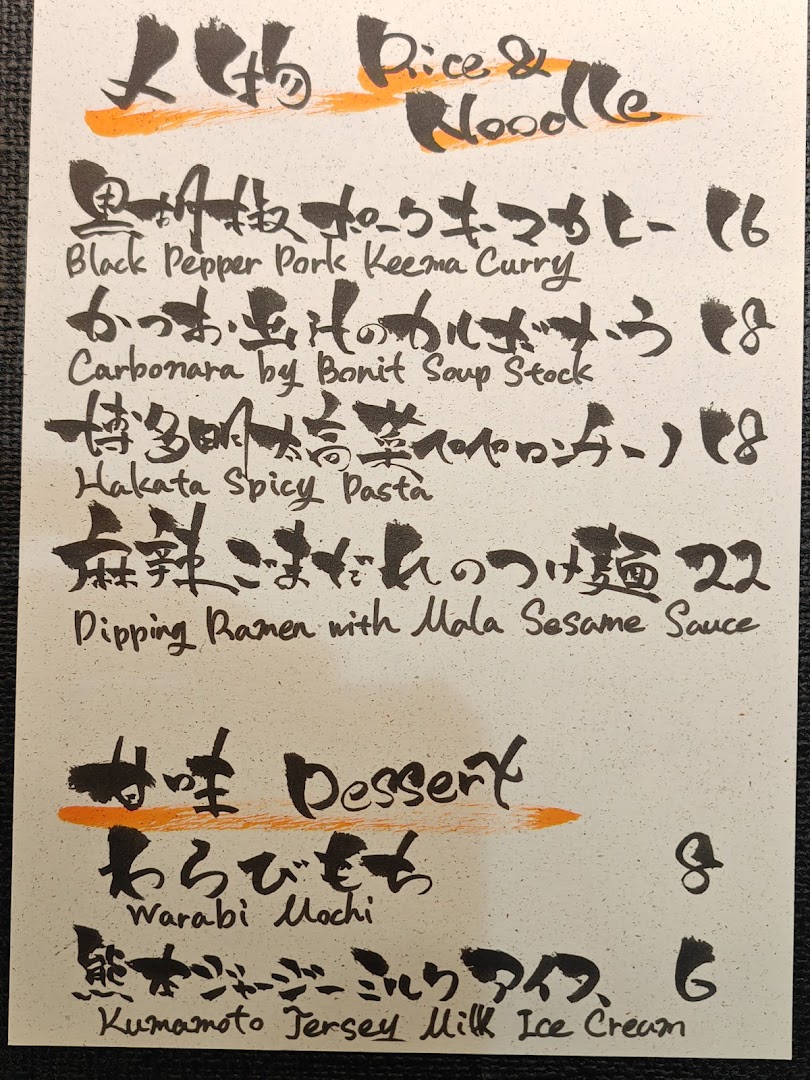 〆物 Rice &
Noodle
黒胡椒ポークキーマカレー 16
Black Pepper Pork Keema Curry
かつお出汁のカルボなうどん 18
Carbonara by Bonit Soup Stock
博多明太高菜ペペロンチーノ 18
Hakata Spicy Pasta
麻辣ごまだれのつけ麺 22
Dipping Ramen with Mala Sesame Sauce
甘味 Dessert
わらびもち 8
Warabi Mochi
熊本ジャージーミルクアイス 6
Kumamoto Jersey Milk Ice Cream